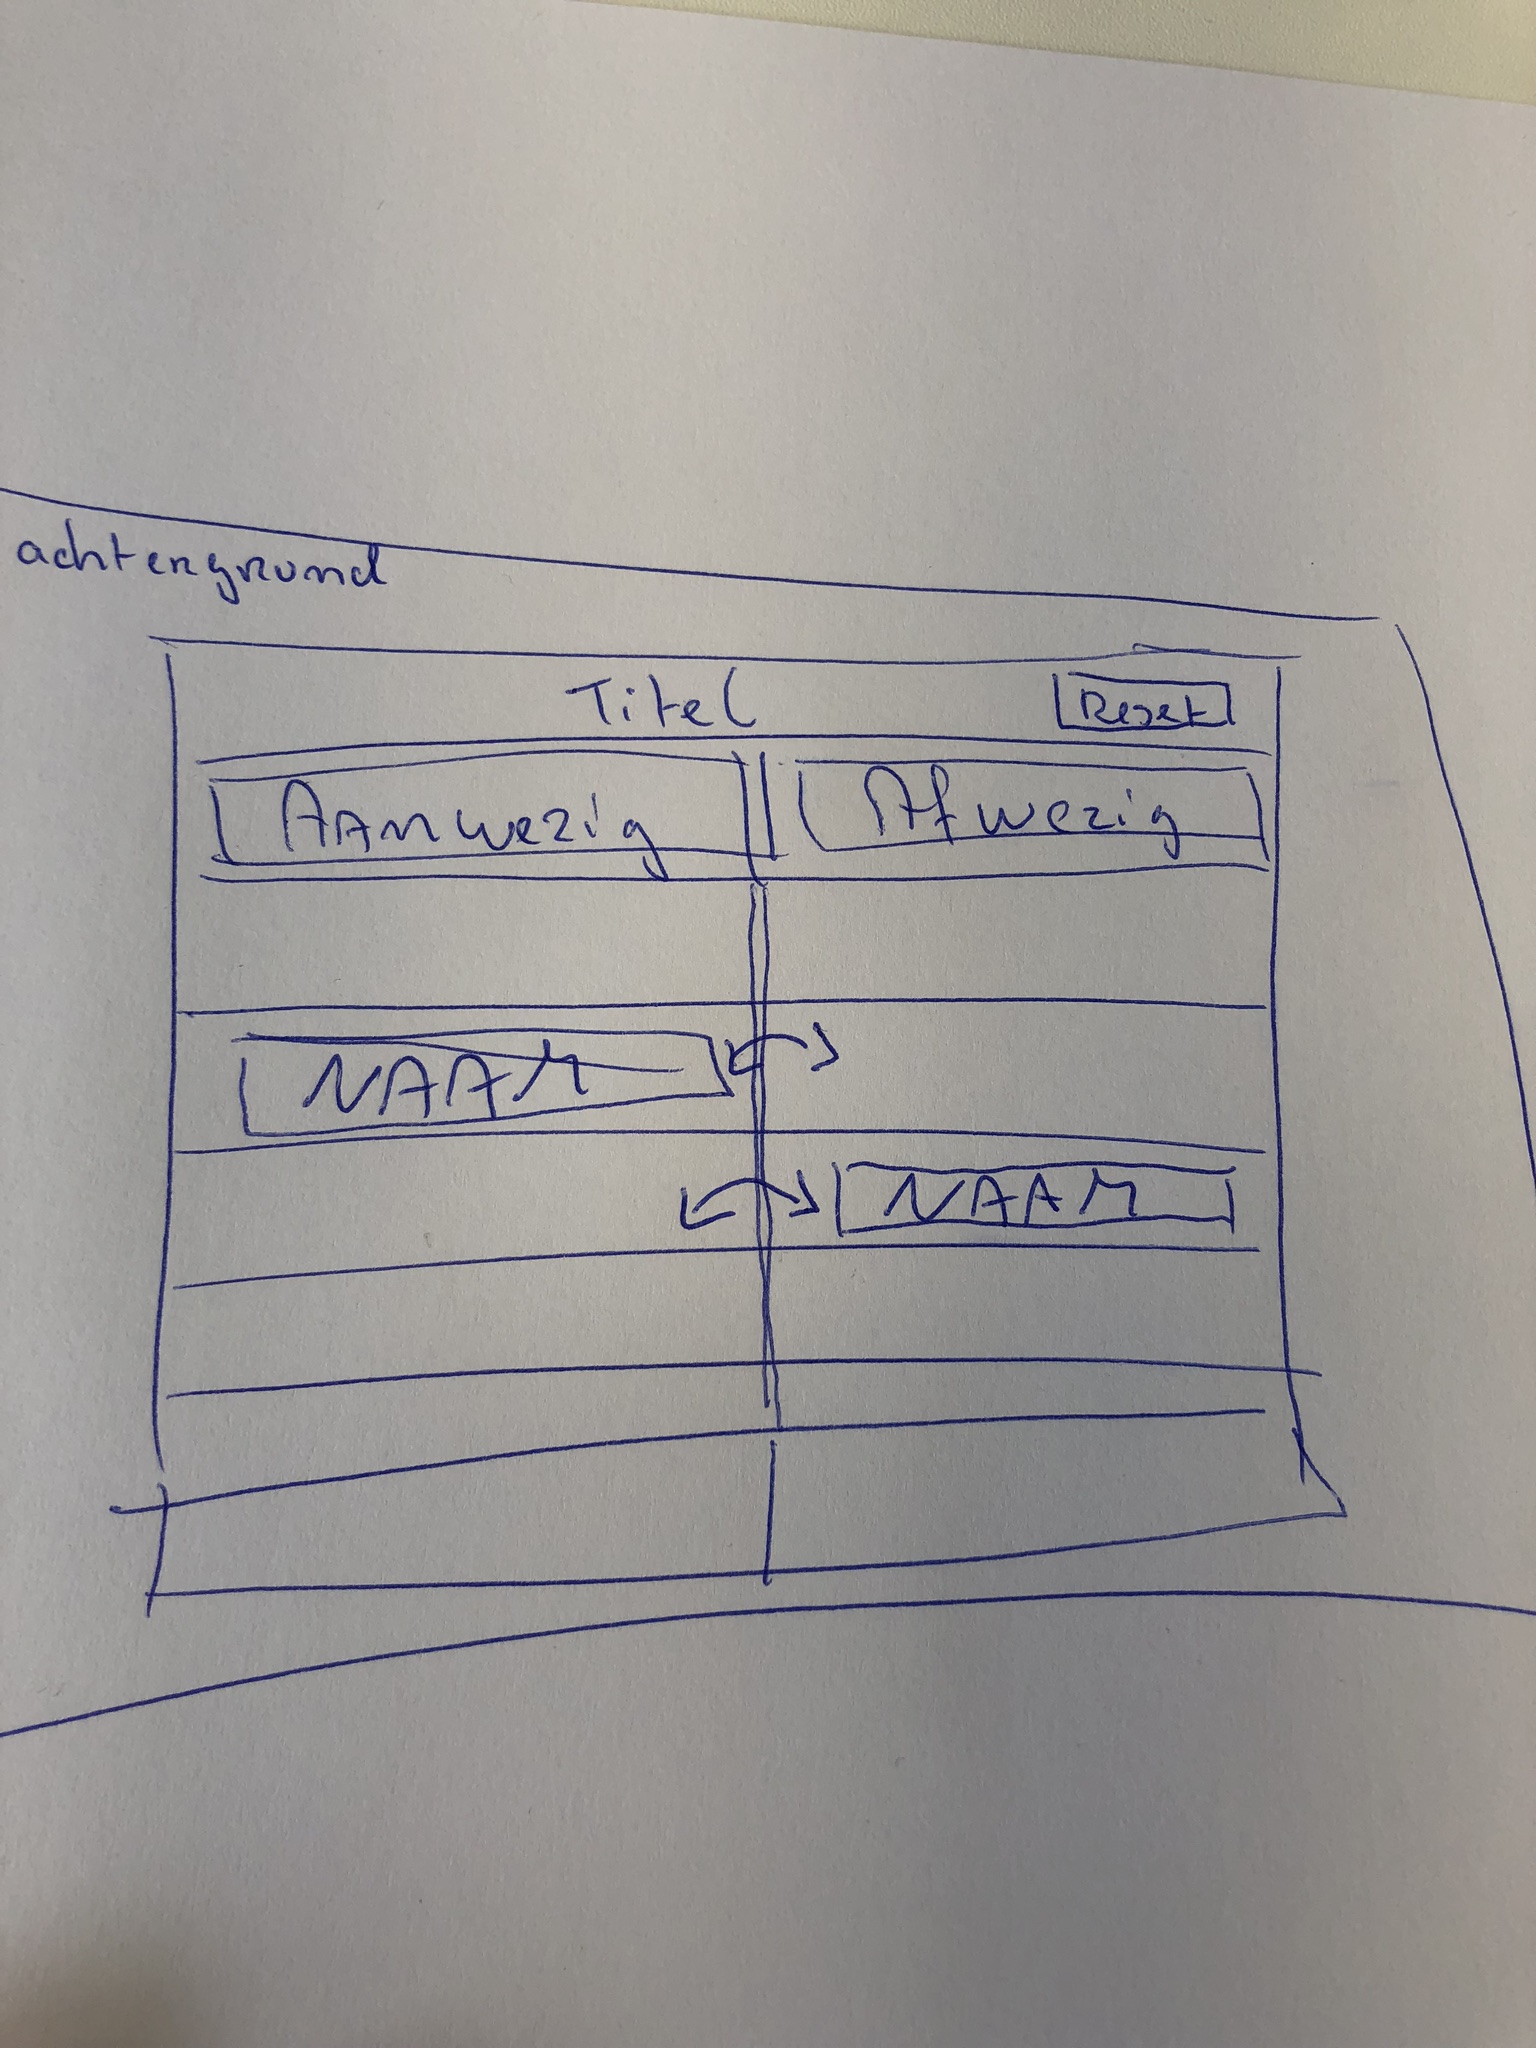 achtergrond
Titel
Reset
Aanwezig
Afwezig
NAAM
NAAM